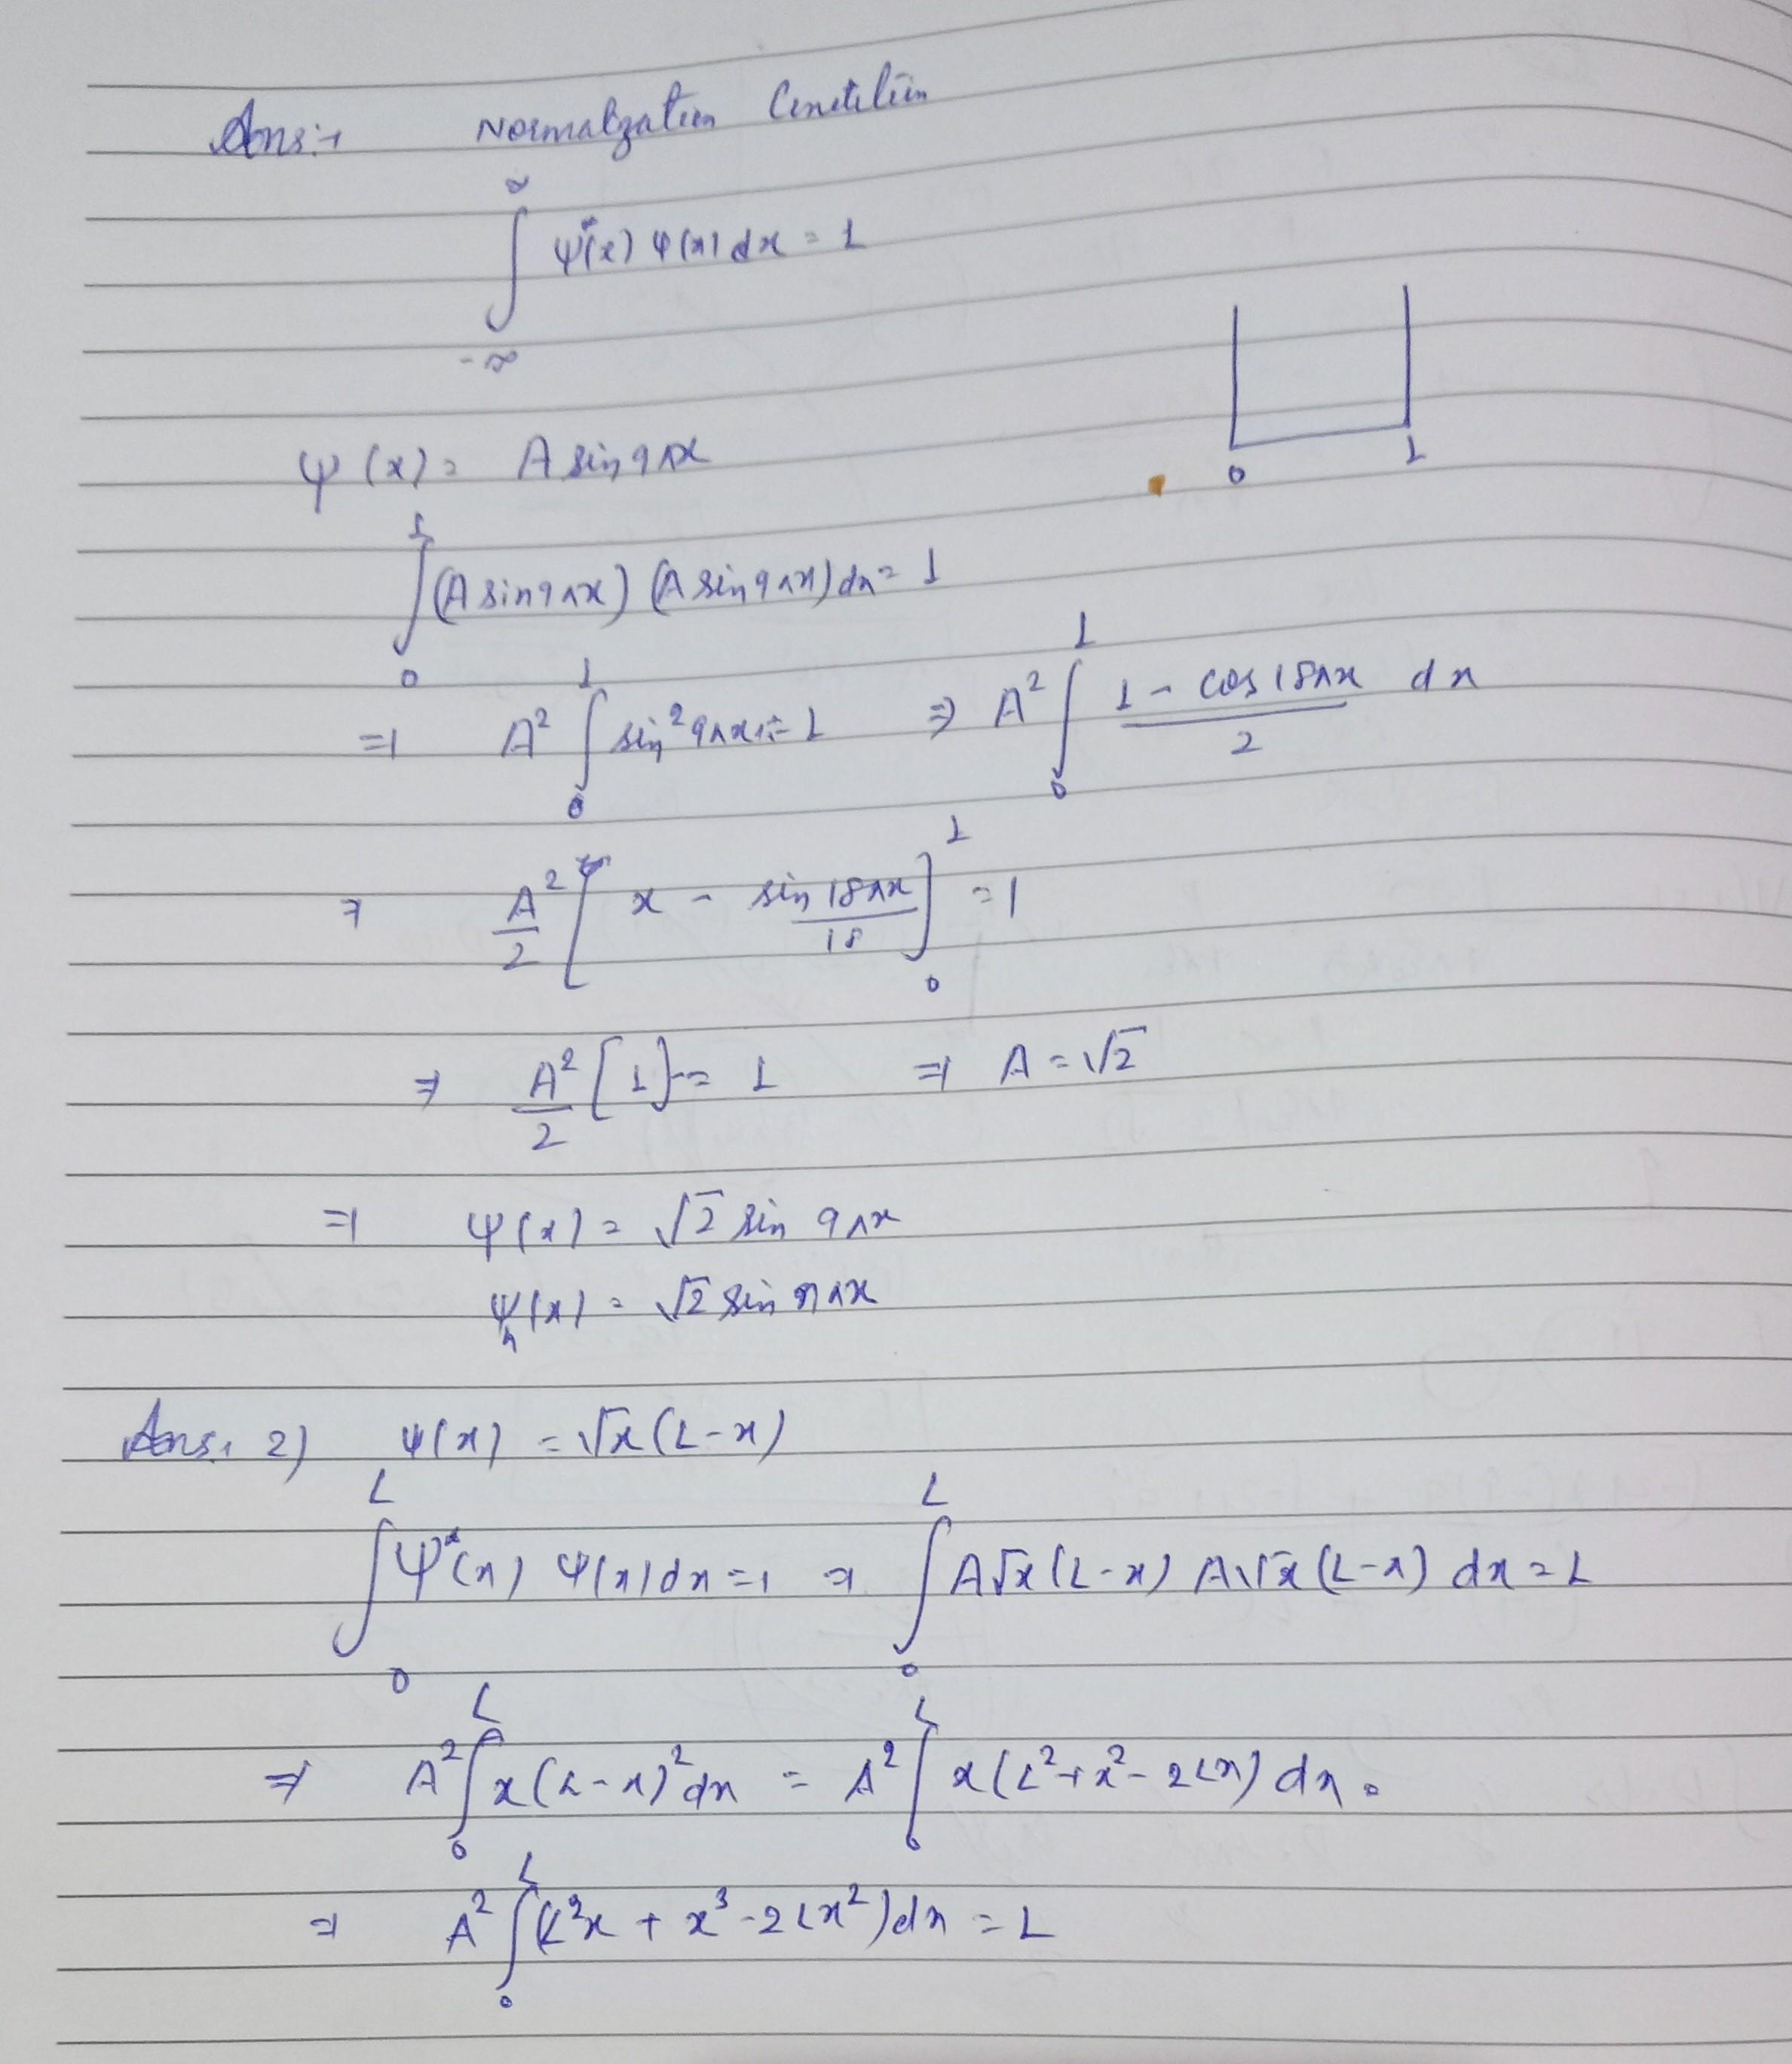 Ans:→ Normalization Condition
∫_{-∞}^{∞} ψ*(x) ψ(x) dx = 1
0 1
ψ(x) = A sin9πx
∫_0^1 (A sin9πx) (A sin9πx) dx = 1
⇒ A² ∫_0^1 sin² 9πx = 1 ⇒ A² ∫_0^1 (1 - cos18πx)/2 dx
⇒ A²/2 [x - sin 18πx/18]_0^1 = 1
⇒ A²/2 [1] = 1 ⇒ A = √2
⇒ ψ(x) = √2 sin 9πx
ψ_n(x) = √2 sin nπx
Ans. 2) ψ(x) = √x (L-x)
∫_0^L ψ*(x) ψ(x) dx = 1 ⇒ ∫_0^L A√x (L-x) A√x (L-x) dx = 1
⇒ A² ∫_0^L x(L-x)² dx = A² ∫_0^L x(L²+x²-2Lx) dx.
⇒ A² ∫_0^L (L²x + x³ - 2Lx²) dx = 1